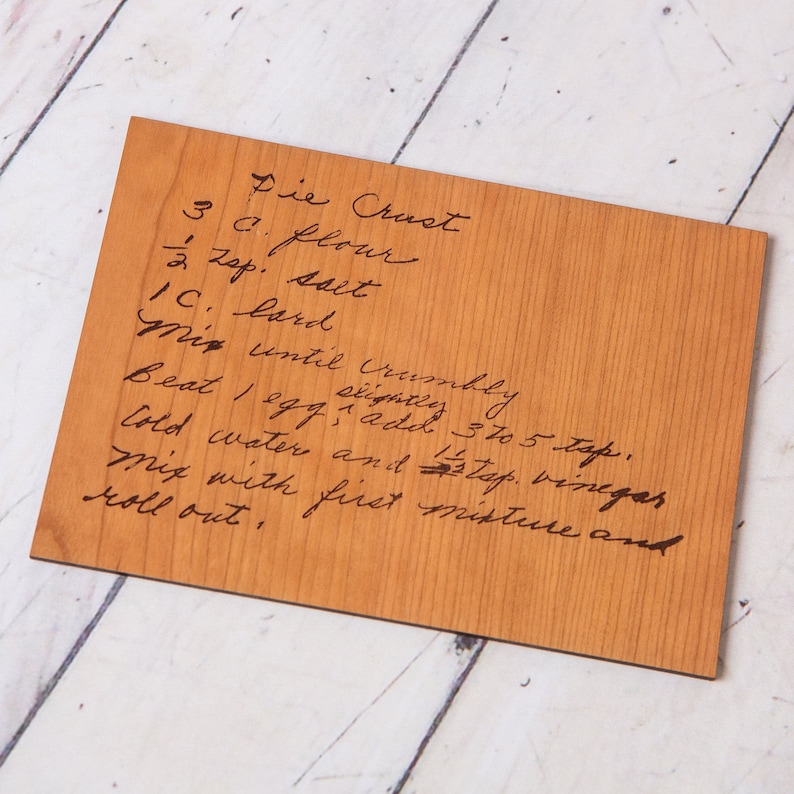 Pie Crust
3 C. flour
1/2 tsp. salt
1 C. lard
Mix until crumbly
Beat 1 egg slightly, add 3 to 5 tsp.
Cold water and 1 1/2 tsp. vinegar
Mix with first mixture and
roll out.